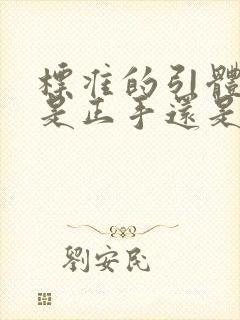 標准的引體
是正手還是
劉安民